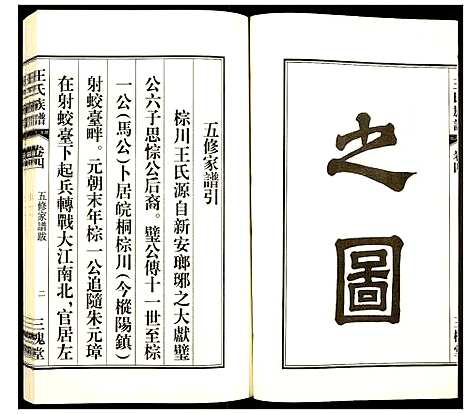 王氏族譜
之圖
三槐堂
五修家譜引
棕川王氏源自新安瑯琊之大獻璧
公六子思悰公后裔。璧公傳十一世至棕
一公(馬公)卜居皖桐棕川(今樅陽鎮)
射蛟臺畔。元朝末年棕一公追隨朱元璋
在射蛟臺下起兵轉戰大江南北,官居左
王氏族譜
卷四
五修家譜跋
二
三槐堂